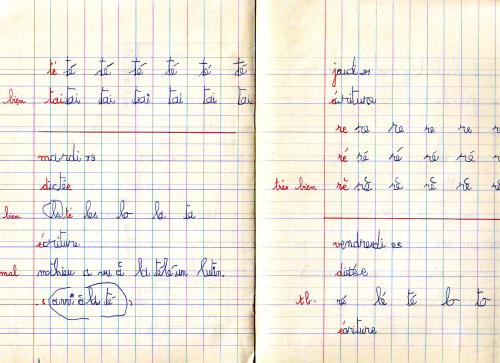 té té té té té té té
bien tai tai tai tai tai tai tai
mardi 19
dictée
bien té les lo la ta
écriture
mal mathieu a vu à la télé un lutin.
à la té
jeudi 21
écriture
re re re re re re
ré ré ré ré ré ré
très bien rê rê rê rê rê rê
vendredi 22
dictée
tb. ré lé té lo to
écriture